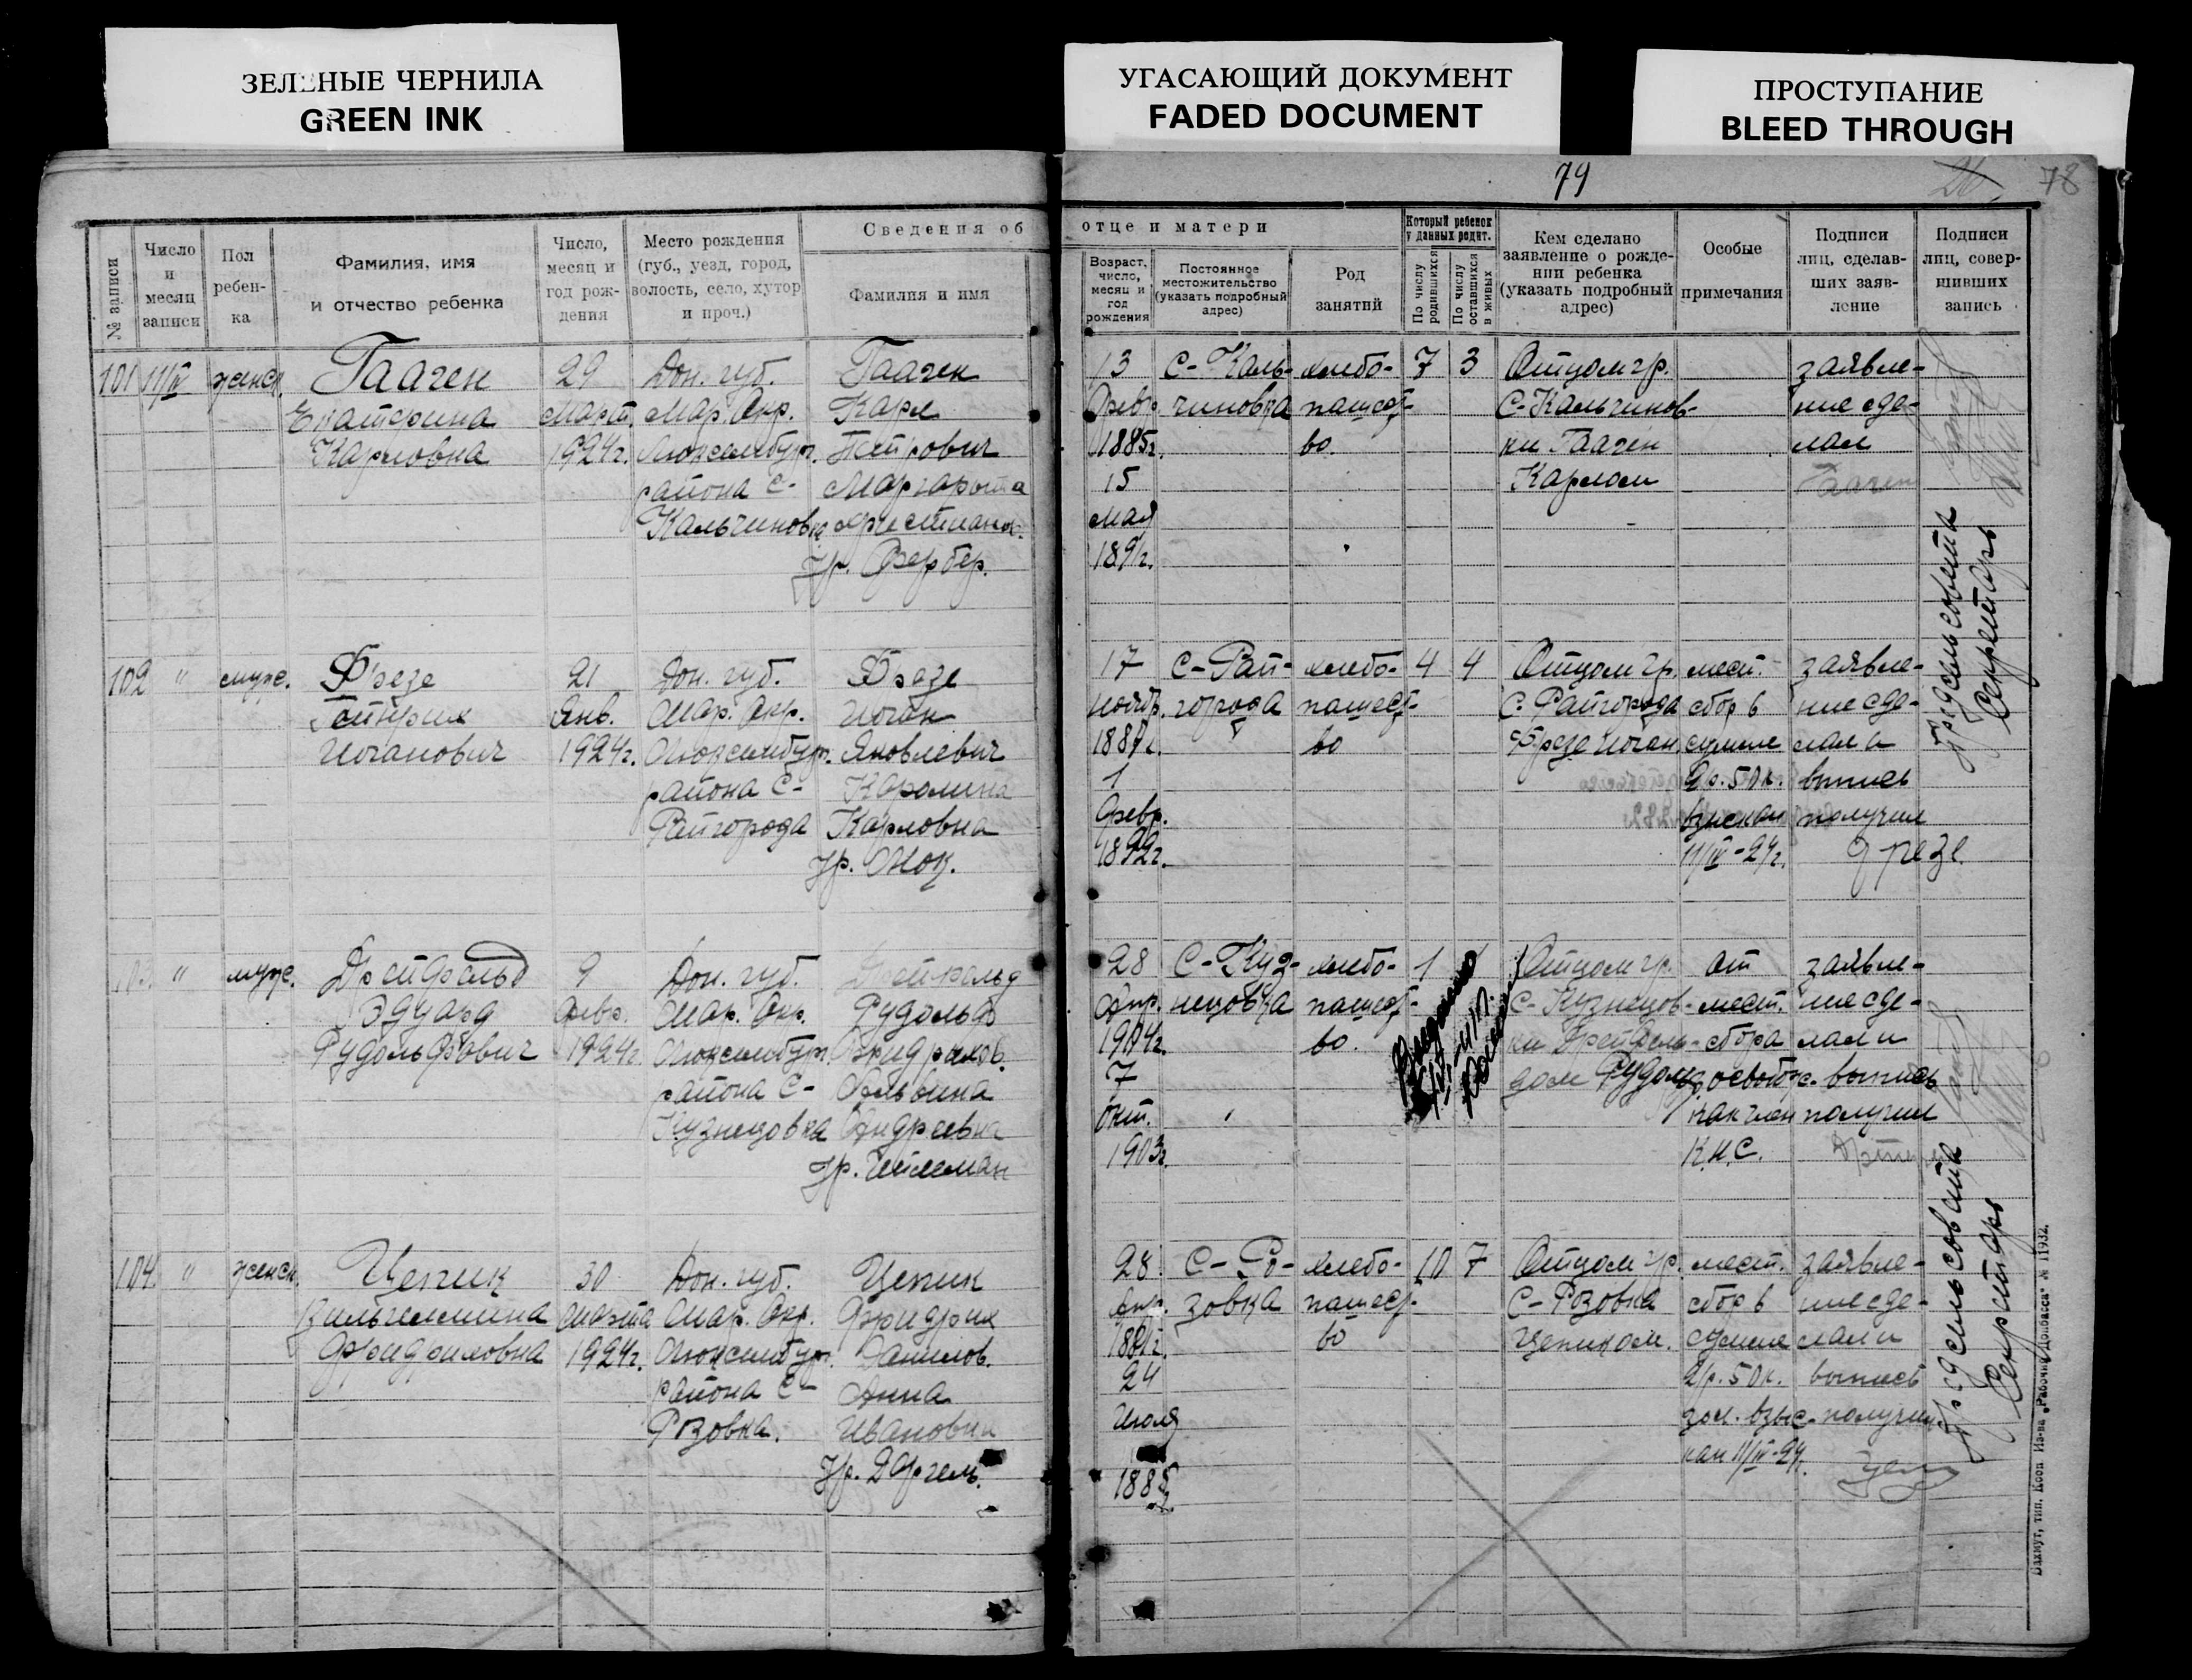 ЗЕЛЕНЫЕ ЧЕРНИЛА
GREEN INK
УГАСАЮЩИЙ ДОКУМЕНТ
FADED DOCUMENT
ПРОСТУПАНИЕ
BLEED THROUGH
79
78
№ записи
Число
и
месяц
записи
Пол
ребен-
ка
Фамилия, имя
и отчество ребенка
Число,
месяц и
год рож-
дения
Место рождения
(губ., уезд, город,
волость, село, хутор
и проч.)
Сведения об
Фамилия и имя
отце и матери
Возраст,
число,
месяц и
год
рождения
Постоянное
местожительство
(указать подробный
адрес)
Род
занятий
Который ребенок
у данных родит.
По числу
родившихся
По числу
оставшихся
в живых
Кем сделано
заявление о рожде-
нии ребенка
(указать подробный
адрес)
Особые
примечания
Подписи
лиц, сделав-
ших заяв-
ление
Подписи
лиц, совер-
шивших
запись
101
11/IV
женск.
Гаазен
Екатерина
Карловна
29
Март.
1924г.
Дон. губ.
Мар. Окр.
Люксембург.
района С-
Кальчиновка
Гаазен
Карл
Петрович
Маргарыта
Християнов.
Ур. Фербер.
13
Февр.
1885г.
15
мая
1891г.
С-Каль-
чиновка
хлебо-
пашест-
во.
7
3
Отцом гр.
С-Кальчинов-
ки Гаазен
Карлом
заявле-
ние сде-
лал
102
"
муж.
Фрезе
Гейнрих
Иоганович
21
Янв.
1924г.
Дон. губ.
Мар. Окр.
Люксембург.
района С-
Райгорода
Фрезе
Иоган
Яковлевич
Каролина
Карловна
Ур. Нок.
17
ноябр.
1887г.
1
Февр.
1892г.
С-Рай-
города
хлебо-
пашест-
во
4
4
Отцом гр.
С-Райгорода
Фрезе Иоган.
мест.
сбор в
сумме
2р. 50к.
взыскан
11/IV-24г.
заявле-
ние сде-
лал и
выпись
получил
Фрезе
Предсельсовета
Секретарь
"
муж.
Дрейфельд
Эдуард
Рудольфович
9
Февр.
1924г.
Дон. губ.
Мар. Окр.
Люксембург.
района С-
Кузнецовка
Дрейфельд
Рудольф
Фридрихов.
Альвина
Андреевна
Ур. Гейлеман
28
Апр.
1904г.
7
Окт.
1903г.
С-Куз-
нецовка
хлебо-
пашест-
во.
1
Отцом гр.
С-Кузнецов-
ки Дрейфель-
дом Рудольф.
от
мест.
сбора
освобож.
как член
К.Н.С.
заявле-
ние сде-
лал и
выпись
получил
104.
"
женск.
Цепик
Вильгельмина
Фридриховна
30
Марта
1924г.
Дон. губ.
Мар. Окр.
Люксембург.
района С-
Розовка.
Цепик
Фридрих
Данилов.
Анна
Ивановна
Ур. Даргель.
28
Апр.
1881г.
24
Июля
1885
С-Ро-
зовка
хлебо-
пашест-
во
10
7
Отцом гр.
С-Розовка
Цепиком.
мест.
сбор в
сумме
2р. 50к.
зол. взыс-
кан 11/IV-24.
заявле-
ние сде-
лал и
выпись
получил
Предсельсовета
Секретарь
Бахмут, тип. Кооп. Из-ва „Рабочий Донбасса" № 11932.